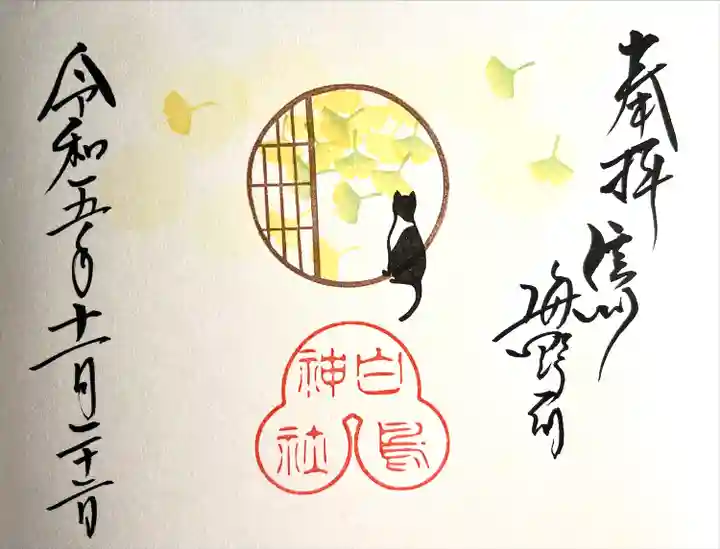 奉拝
信州
海野宿
白鳥
神社
令和五年十一月二十二日